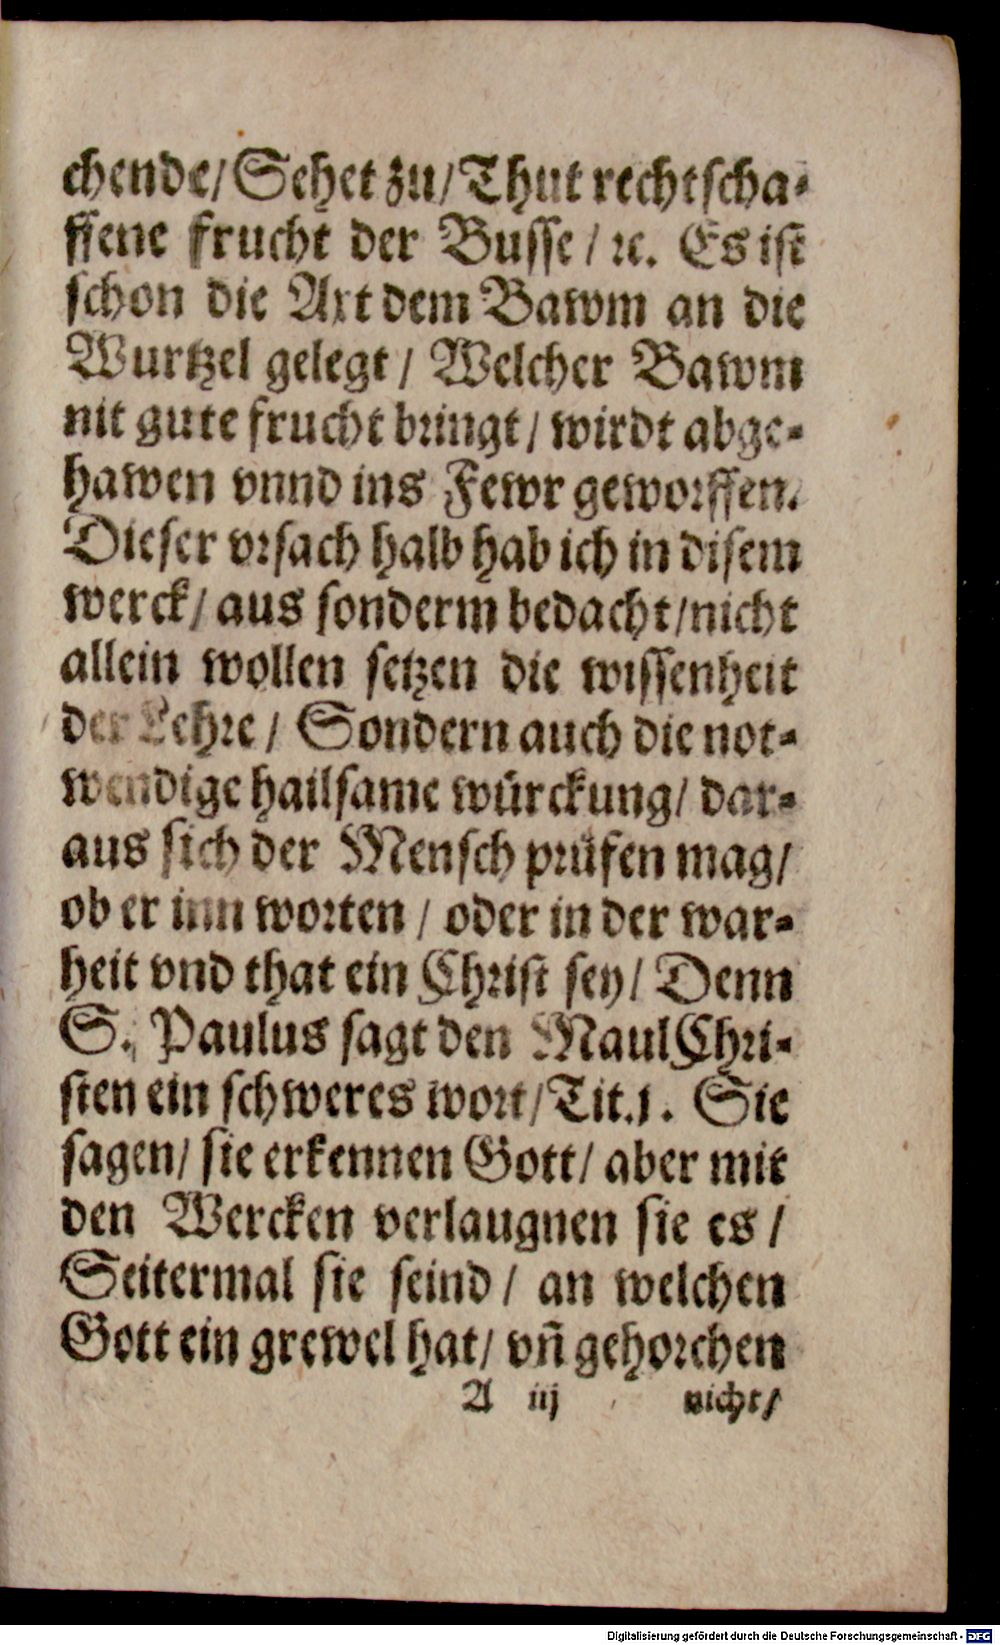 chende/ Sehet zu/ Thut rechtscha-
ffene frucht der Busse/ ꝛc. Es ist
schon die Axt dem Bawm an die
Wurtzel gelegt/ Welcher Bawm
nit gute frucht bringt/ wirdt abge-
hawen vnnd ins Fewr geworffen.
Dieser vrsach halb hab ich in disem
werck/ aus sonderm bedacht/ nicht
allein wollen setzen die wissenheit
der Lehre/ Sondern auch die not-
wendige hailsame würckung/ dar-
aus sich der Mensch prüfen mag/
ob er inn worten/ oder in der war-
heit vnd that ein Christ sey/ Denn
S. Paulus sagt den MaulChri-
sten ein schweres wort/ Tit.1. Sie
sagen/ sie erkennen Gott/ aber mit
den Wercken verlaugnen sie es/
Seitermal sie seind/ an welchen
Gott ein grewel hat/ vñ gehorchen
A iij nicht/
Digitalisierung gefördert durch die Deutsche Forschungsgemeinschaft - DFG